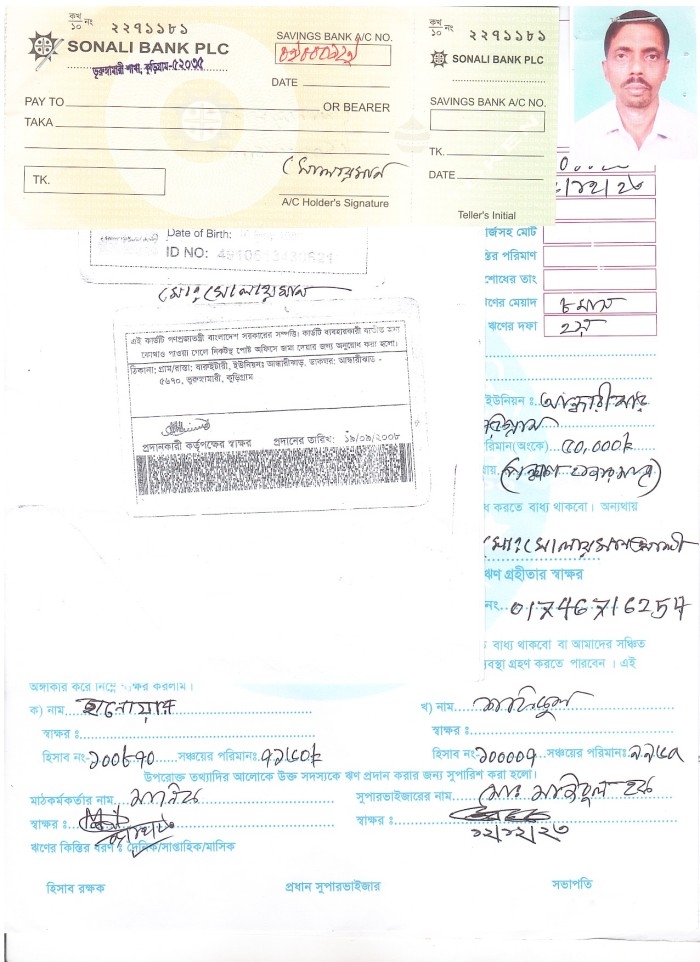 কখ/১০ নং ২২৭১১৮১
SONALI BANK PLC
ভুরুঙ্গামারী শাখা, কুড়িগ্রাম-৫২০৩৫
SAVINGS BANK A/C NO.
DATE
PAY TO OR BEARER
TAKA
TK.
সোলায়মান
A/C Holder's Signature
কখ/১০ নং ২২৭১১৮১
SONALI BANK PLC
SAVINGS BANK A/C NO.
TK.
DATE
Teller's Initial
Date of Birth:
ID NO:
মোঃ সোলায়মান
এই কার্ডটি গণপ্রজাতন্ত্রী বাংলাদেশ সরকারের সম্পত্তি। কার্ডটি ব্যবহারকারী ব্যতীত অন্য
কোথাও পাওয়া গেলে নিকটস্থ পোষ্ট অফিসে জমা দেবার জন্য অনুরোধ করা হলো।
ঠিকানা: গ্রাম/রাস্তা: বারুইটারী, ইউনিয়ন: আন্ধারীঝাড়, ডাকঘর: আন্ধারীঝাড় -
৫৬৭০, ভুরুঙ্গামারী, কুড়িগ্রাম
প্রদানকারী কর্তৃপক্ষের স্বাক্ষর প্রদানের তারিখ: ১৯/০৯/২০০৮
র্জিসহ মোট
স্তির পরিমাণ
শোধের তাং
ণের মেয়াদ ৮ মাস
ঋণের দফা ২য়
ইউনিয়ন ঃ আন্ধারীঝাড়
রিমান(অংকে) ৫০,০০০/=
(পঞ্চাশ হাজার মাত্র)
করতে বাধ্য থাকবো। অন্যথায়
মোঃ সোলায়মান আলী
ঋণ গ্রহীতার স্বাক্ষর
নং 01746716254
বাধ্য থাকবো বা আমাদের সঞ্চিত
ব্যবস্থা গ্রহণ করতে পারবেন । এই
অঙ্গীকার করে নিম্নে স্বাক্ষর করলাম।
ক) নাম আনোয়ার খ) নাম
স্বাক্ষর ঃ স্বাক্ষর ঃ
হিসাব নং- সঞ্চয়ের পরিমানঃ হিসাব নং ১০০০০৭ সঞ্চয়ের পরিমানঃ
উপরোক্ত তথ্যাদির আলোকে উক্ত সদস্যকে ঋণ প্রদান করার জন্য সুপারিশ করা হলো।
মাঠকর্মকর্তার নাম সুপারভাইজারের নাম মোঃ সাইদুল হক
স্বাক্ষর ঃ স্বাক্ষর ঃ
১২/১২/২৩
ঋণের কিস্তির ধরণ ঃ দৈনিক/সাপ্তাহিক/মাসিক
হিসাব রক্ষক প্রধান সুপারভাইজার সভাপতি